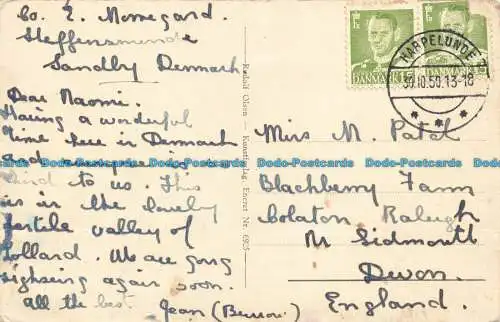 Co. E. Morregard.
Steffensminde
Sandby Denmark
Dear Naomi.
Having a wonderful
time here in Denmark
and everyone is
kind to us. This
is in the lovely
fertile valley of
Lollard. We are going
sighseing again soon.
all the best
Jean
Rudolf Olsen - Kunstforlag. Eneret Nr. 6905
DANMARK 15
DANMARK
HARPELUNDE
30.10.50.13-18
Miss M. Patel
Blackberry Farm
Colaton Raleigh
Nr Sidmouth
Devon.
England.
Dodo-Postcards Dodo-Postcards Dodo-Postcards Dodo-Postcards